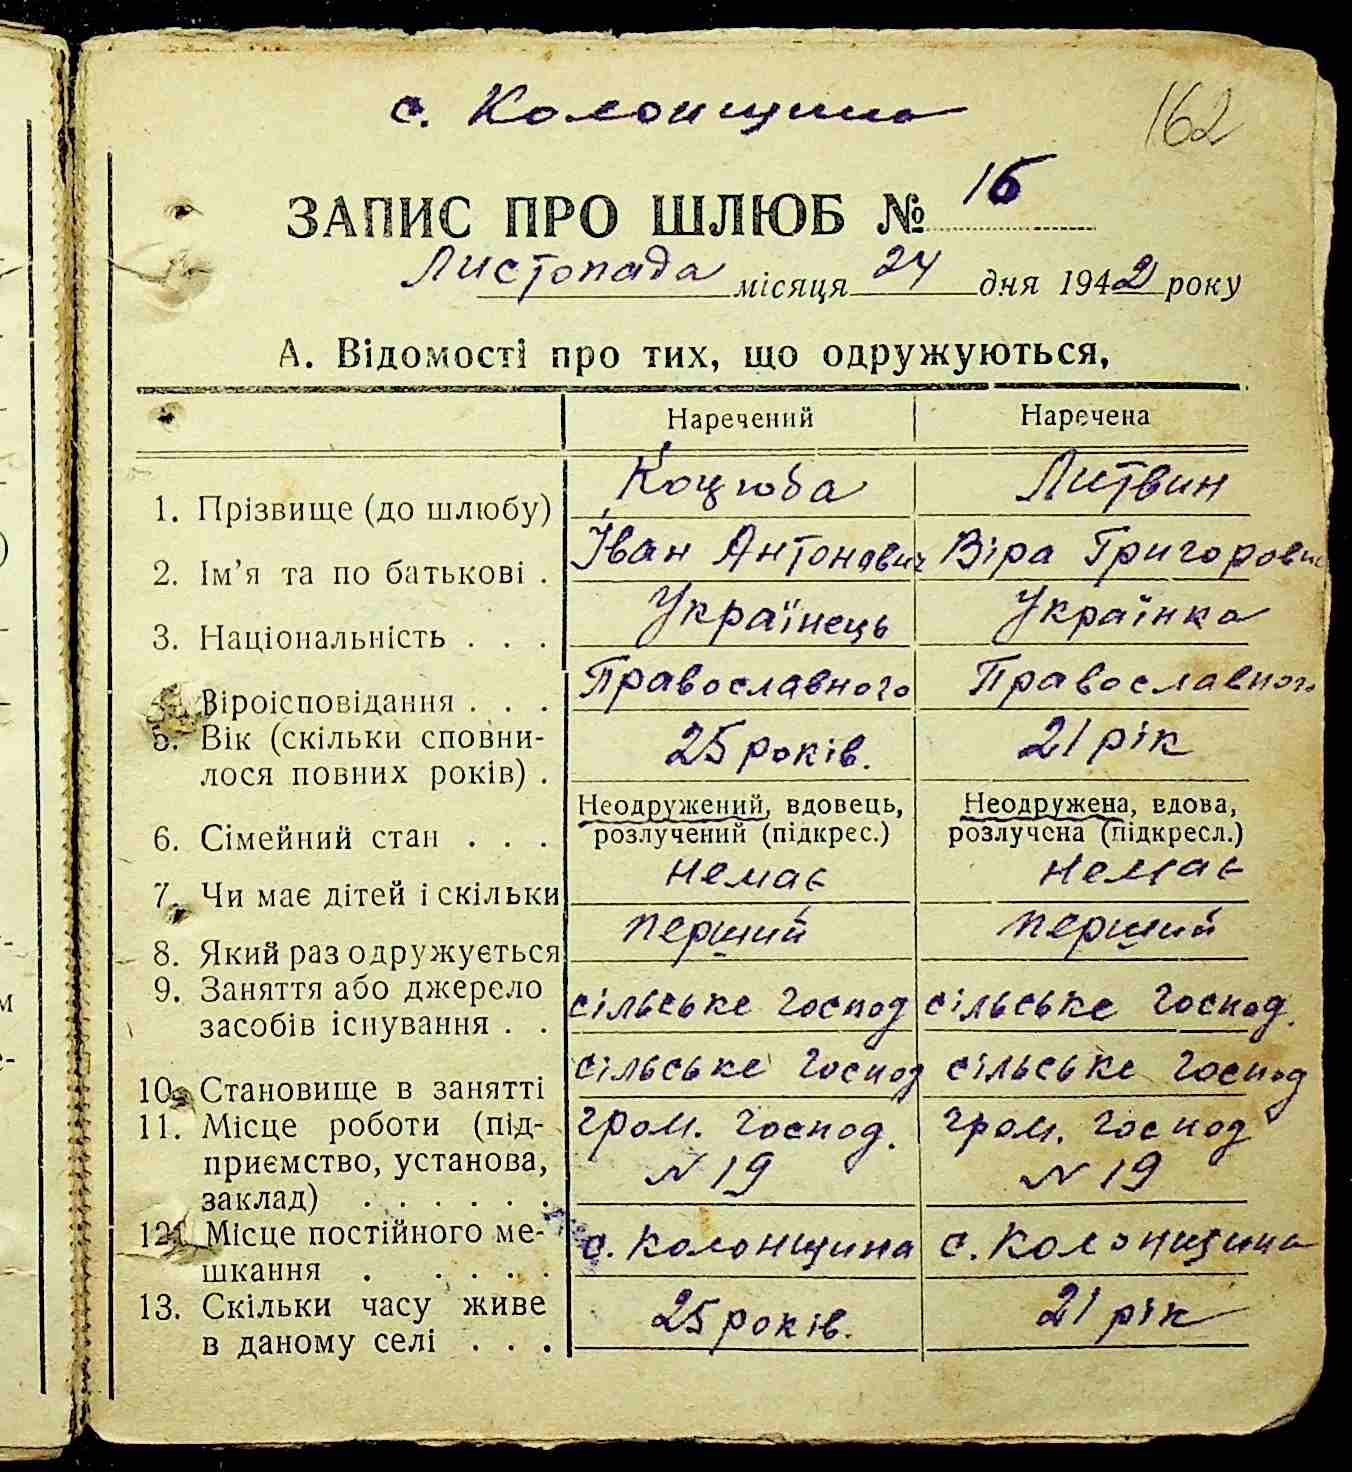 с. Колонщина
162
ЗАПИС ПРО ШЛЮБ № 16
Листопада місяця 24 дня 1942 року
А. Відомості про тих, що одружуються,
Наречений Наречена
1. Прізвище (до шлюбу) Коцюба Литвин
2. Ім’я та по батькові . Іван Антонович Віра Григоровн
3. Національність . . . Українець Українка
Віроісповідання . . . Православного Православного
5. Вік (скільки сповни-
лося повних років) . 25 років. 21 рік
Неодружений, вдовець, Неодружена, вдова,
6. Сімейний стан . . . розлучений (підкрес.) розлучена (підкресл.)
7. Чи має дітей і скільки немає немає
8. Який раз одружується перший перший
9. Заняття або джерело
засобів існування . . сільське господ сільське господ.
10. Становище в занятті сільське господ сільське господ
11. Місце роботи (під- гром. господ. гром. господ
приємство, установа, N 19 N 19
заклад) . . . . . .
12. Місце постійного ме- с. Колонщина с. Колонщина
шкання . . . . .
13. Скільки часу живе 25 років. 21 рік
в даному селі . . .